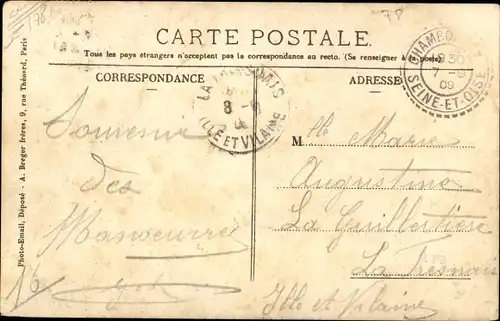 78
78
CARTE POSTALE.
Tous les pays étrangers n'acceptent pas la correspondance au recto. (Se renseigner à la poste)
CORRESPONDANCE
ADRESSE
CHAMBO
30
7 -9
09
SEINE-ET-OISE
8 -9
ILLE ET VILAINE
Souvenir
des
Manoeuvre
16
Mlle Marie
Augustine
La Guillertière
La Tresnais
Ille et Vilaine
Photo-Email, Déposé - A. Breger frères, 9, rue Thénard, Paris